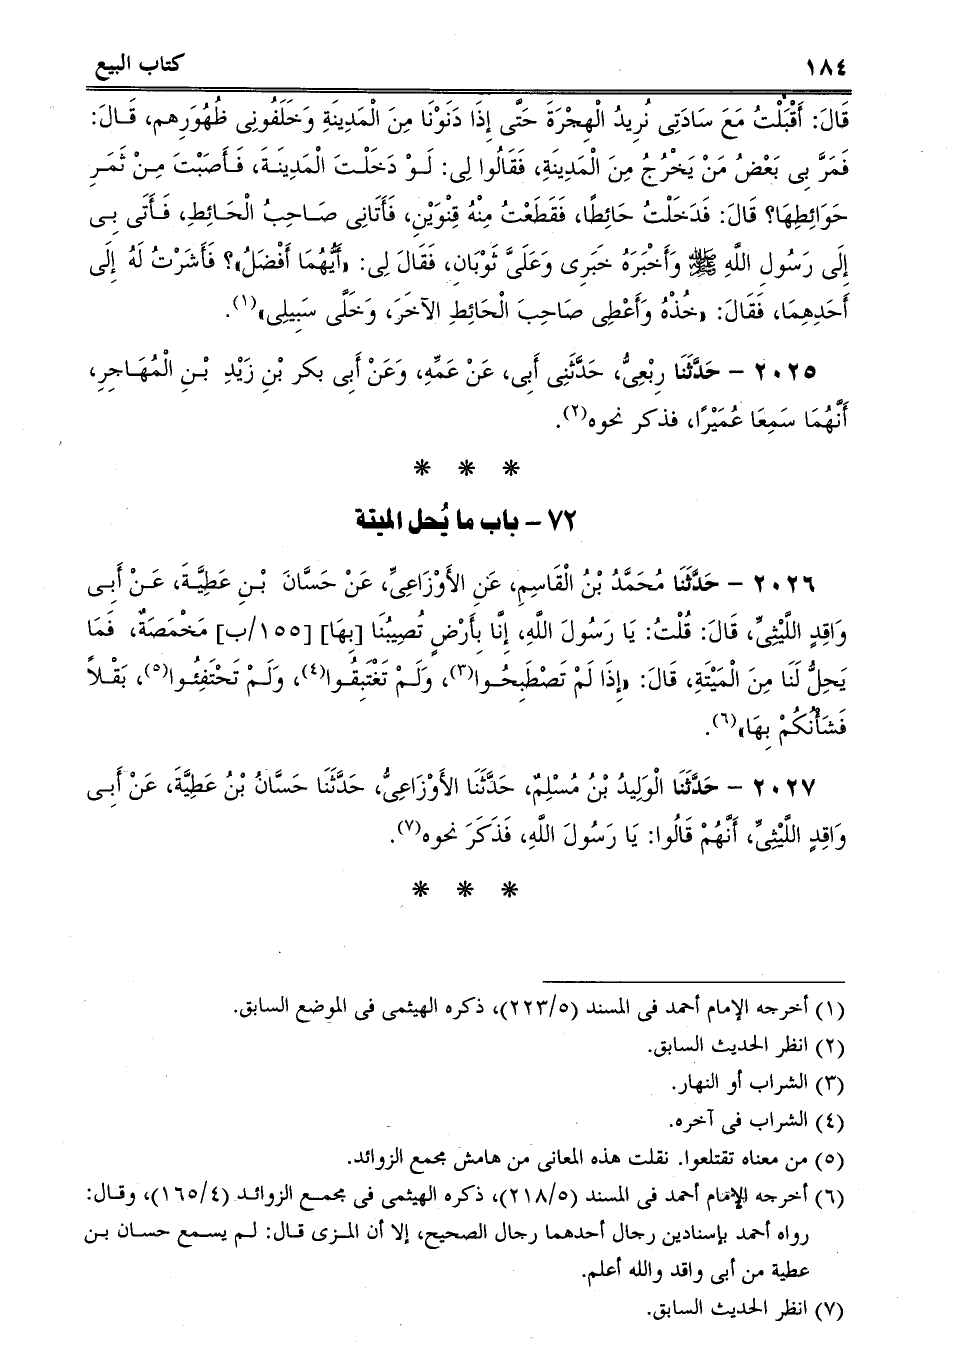 ١٨٤ كتاب البيع
قَالَ: أَقْبَلْتُ مَعَ سَادَتِى نُرِيدُ الْهِجْرَةَ حَتَّى إِذَا دَنَوْنَا مِنَ الْمَدِينَةِ وَخَلَفُونِى ظُهُورَهِم، قَـالَ:
فَمَرَّ بِى بَعْضُ مَنْ يَخْرُجُ مِنَ الْمَدِينَةِ، فَقَالُوا لِى: لَـوْ دَخَلْـتَ الْمَدِينَـةَ، فَـأَصَبْتَ مِـنْ ثَمَـرِ
حَوَائِطِهَا؟ قَالَ: فَدَخَلْتُ حَائِطًا، فَقَطَعْتُ مِنْهُ قِنْوَيْنِ، فَأَتَانِى صَـاحِبُ الْحَـائِطِ، فَـأَتَى بِـى
إِلَى رَسُولِ اللَّهِ ﷺ وَأَخْبَرَهُ خَبَرِى وَعَلَىَّ ثَوْبَانِ، فَقَالَ لِى: «أَيُّهُمَا أَفْضَلُ»؟ فَأَشَرْتُ لَهُ إِلَى
أَحَدِهِمَا، فَقَالَ: «خُذْهُ وَأَعْطِى صَاحِبَ الْحَائِطِ الآخَرَ، وَخَلَّى سَبِيلِى»(١).
٢٠٢٥ – حَدَّثَنَا رِبْعِىُّ، حَدَّثَنِى أَبِى، عَنْ عَمِّهِ، وَعَنْ أَبِى بكر بْنِ زَيْدِ بْـنِ الْمُهَـاجِرِ،
أَنَّهُمَا سَمِعَا عُمَيْرًا، فذكر نحوه(٢).
* * *
٧٢ – باب ما يُحل الميتة
٢٠٢٦ – حَدَّثَنَا مُحَمَّدُ بْنُ الْقَاسِمِ، عَنِ الأَوْزَاعِىِّ، عَنْ حَسَّانَ بْـنِ عَطِيَّـةَ، عَـنْ أَبِـى
وَاقِدٍ اللَّيْثِىِّ، قَالَ: قُلْتُ: يَا رَسُولَ اللَّهِ، إِنَّا بِأَرْضٍ تُصِيبُنَا [بِهَا] [١٥٥/ب] مَخْمَصَةٌ، فَمَا
يَحِلُّ لَنَا مِنَ الْمَيْتَةِ، قَالَ: «إِذَا لَمْ تَصْطَبِحُـوا(٣)، وَلَـمْ تَغْتَبِقُـوا(٤)، وَلَـمْ تَحْتَفِئُـوا(٥)، بَقْـلاً
فَشَأْنُكُمْ بِهَا»(٦).
٢٠٢٧ – حَدَّثَنَا الْوَلِيدُ بْنُ مُسْلِمٌ، حَدَّثَنَا الأَوْزَاعِىُّ، حَدَّثَنَا حَسَّانُ بْنُ عَطِيَّةَ، عَنْ أَبِـى
وَاقِدٍ اللَّيْثِىِّ، أَنَّهُمْ قَالُوا: يَا رَسُولَ اللَّهِ، فَذَكَرَ نحوه(٧).
* * *
(١) أخرجه الإمام أحمد فى المسند (٢٢٣/٥)، ذكره الهيثمى فى الموضع السابق.
(٢) انظر الحديث السابق.
(٣) الشراب أو النهار.
(٤) الشراب فى آخره.
(٥) من معناه تقتلعوا. نقلت هذه المعانى من هامش مجمع الزوائد.
(٦) أخرجه الإمام أحمد فى المسند (٢١٨/٥)، ذكره الهيثمى فى مجمـع الزوائـد (١٦٥/٤)، وقـال:
رواه أحمد بإسنادين رجال أحدهما رجال الصحيح، إلا أن المـزى قـال: لـم يسـمع حسـان بـن
عطية من أبى واقد والله أعلم.
(٧) انظر الحديث السابق.